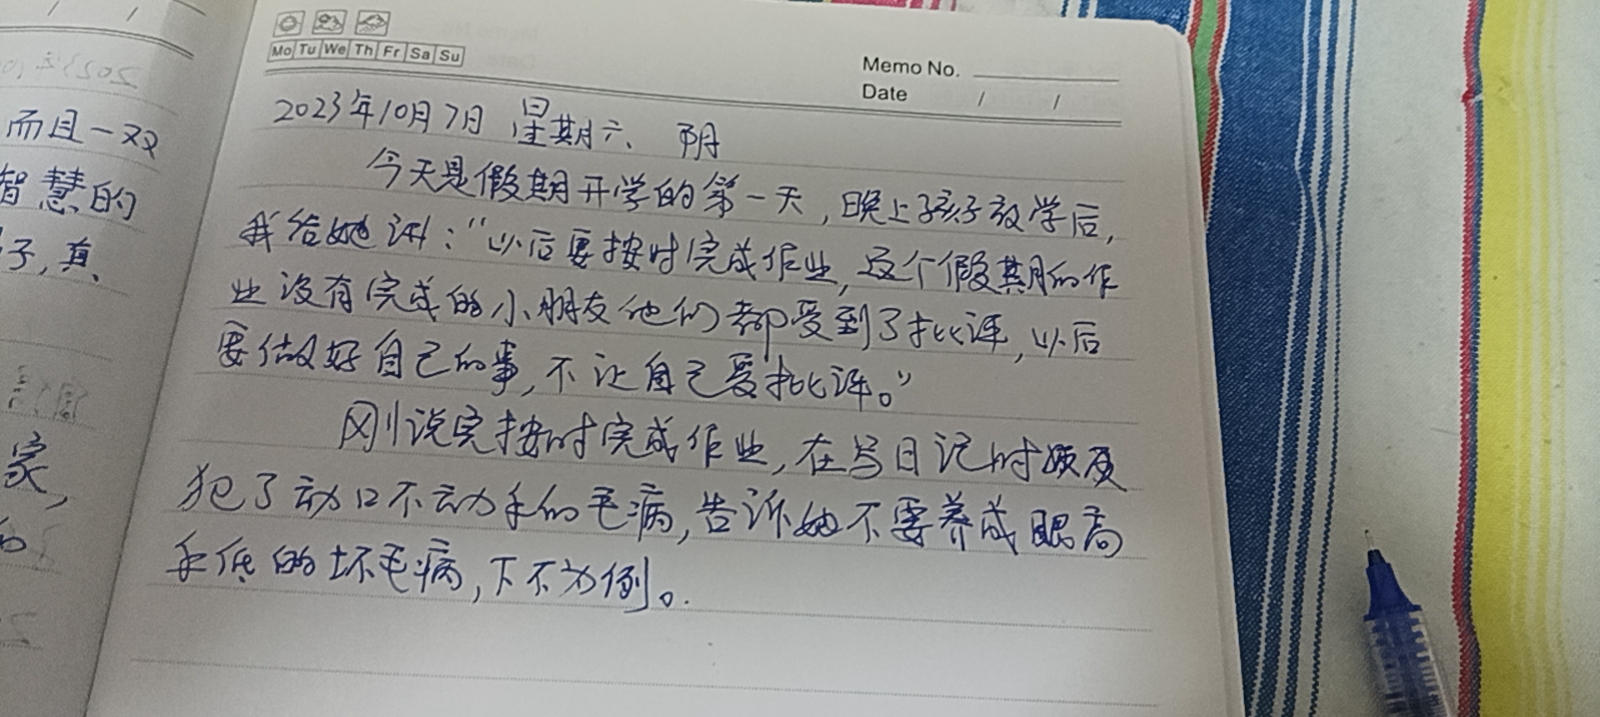 而且一双
智慧的
子,真
家,
Mo Tu We Th Fr Sa Su
Memo No.
Date / /
2023年10月7日 星期六、 阴
今天是假期开学的第一天,晚上孩子放学后,
我给她讲:“以后要按时完成作业,这个假期的作
业没有完成的小朋友他们都受到了批评,以后
要做好自己的事,不让自己受批评。”
刚说完按时完成作业,在写日记时
犯了动口不动手的毛病,告诉她不要养成眼高
手低的坏毛病,下不为例。